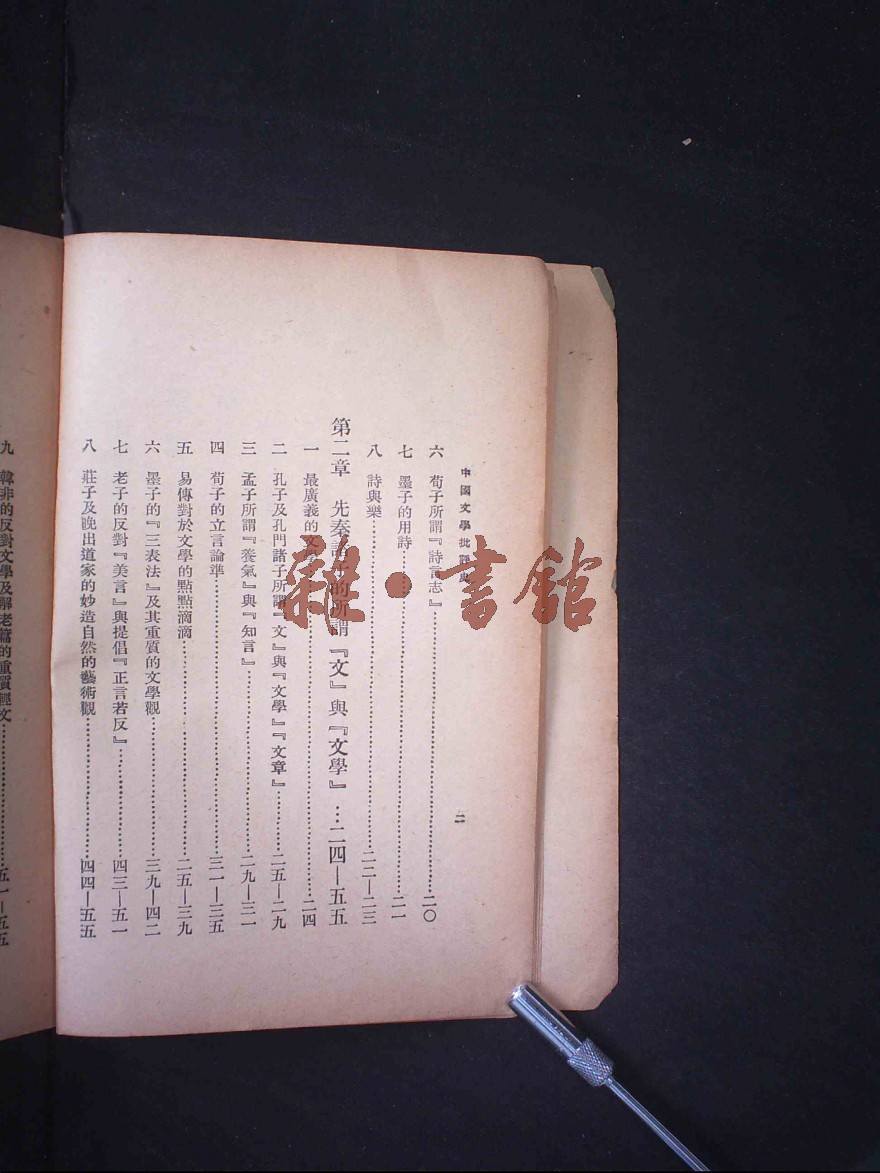 中國文學批評史
二
六 荀子所謂『詩言志』……二〇
七 墨子的用詩……二一
八 詩與樂……二二—二三
第二章 先秦諸子的所謂『文』與『文學』…二四—五五
一 最廣義的文學……二四
二 孔子及孔門諸子所謂『文』與『文學』『文章』……二五—二九
三 孟子所謂『養氣』與『知言』……二九—三一
四 荀子的立言論準……三一—三五
五 易傳對於文學的點點滴滴……二五—三九
六 墨子的『三表法』及其重質的文學觀……三九—四二
七 老子的反對『美言』與提倡『正言若反』……四三—五一
八 莊子及晚出道家的妙造自然的藝術觀……四四—五五
九 韓非的反對文學及解老篇的重質輕文……五一—五五
雜·書館